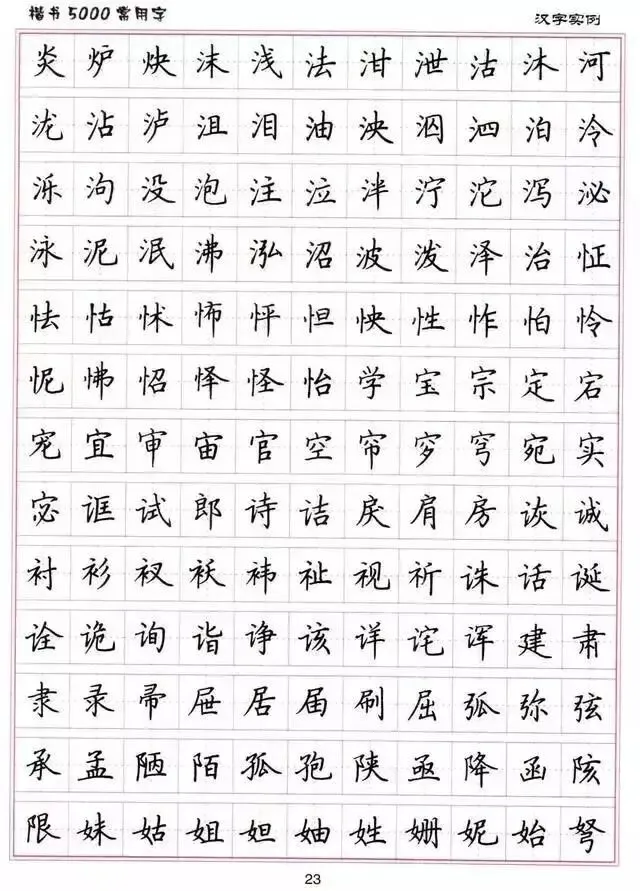 楷书5000常用字
汉字实例
炎炉炔沫浅法泔泄沽沐河
泷沾泸沮泪油泱泅泗泊泠
泺泃没泡注泣泮泞沱泻泌
泳泥泯沸泓沼波泼泽治怔
怯怙怵怖怦怛怏性怍怕怜
怩怫怊怿怪怡学宝宗定宕
宠宜审宙官空帘穸穹宛实
宓诓试郎诗诘戾肩房诙诚
衬衫衩袄祎祉视祈诛话诞
诠诡询诣诤该详诧诨建肃
隶录帚屉居届刷屈弧弥弦
承孟陋陌孤孢陕亟降函陔
限妹姑姐妲妯姓姗妮始弩
23